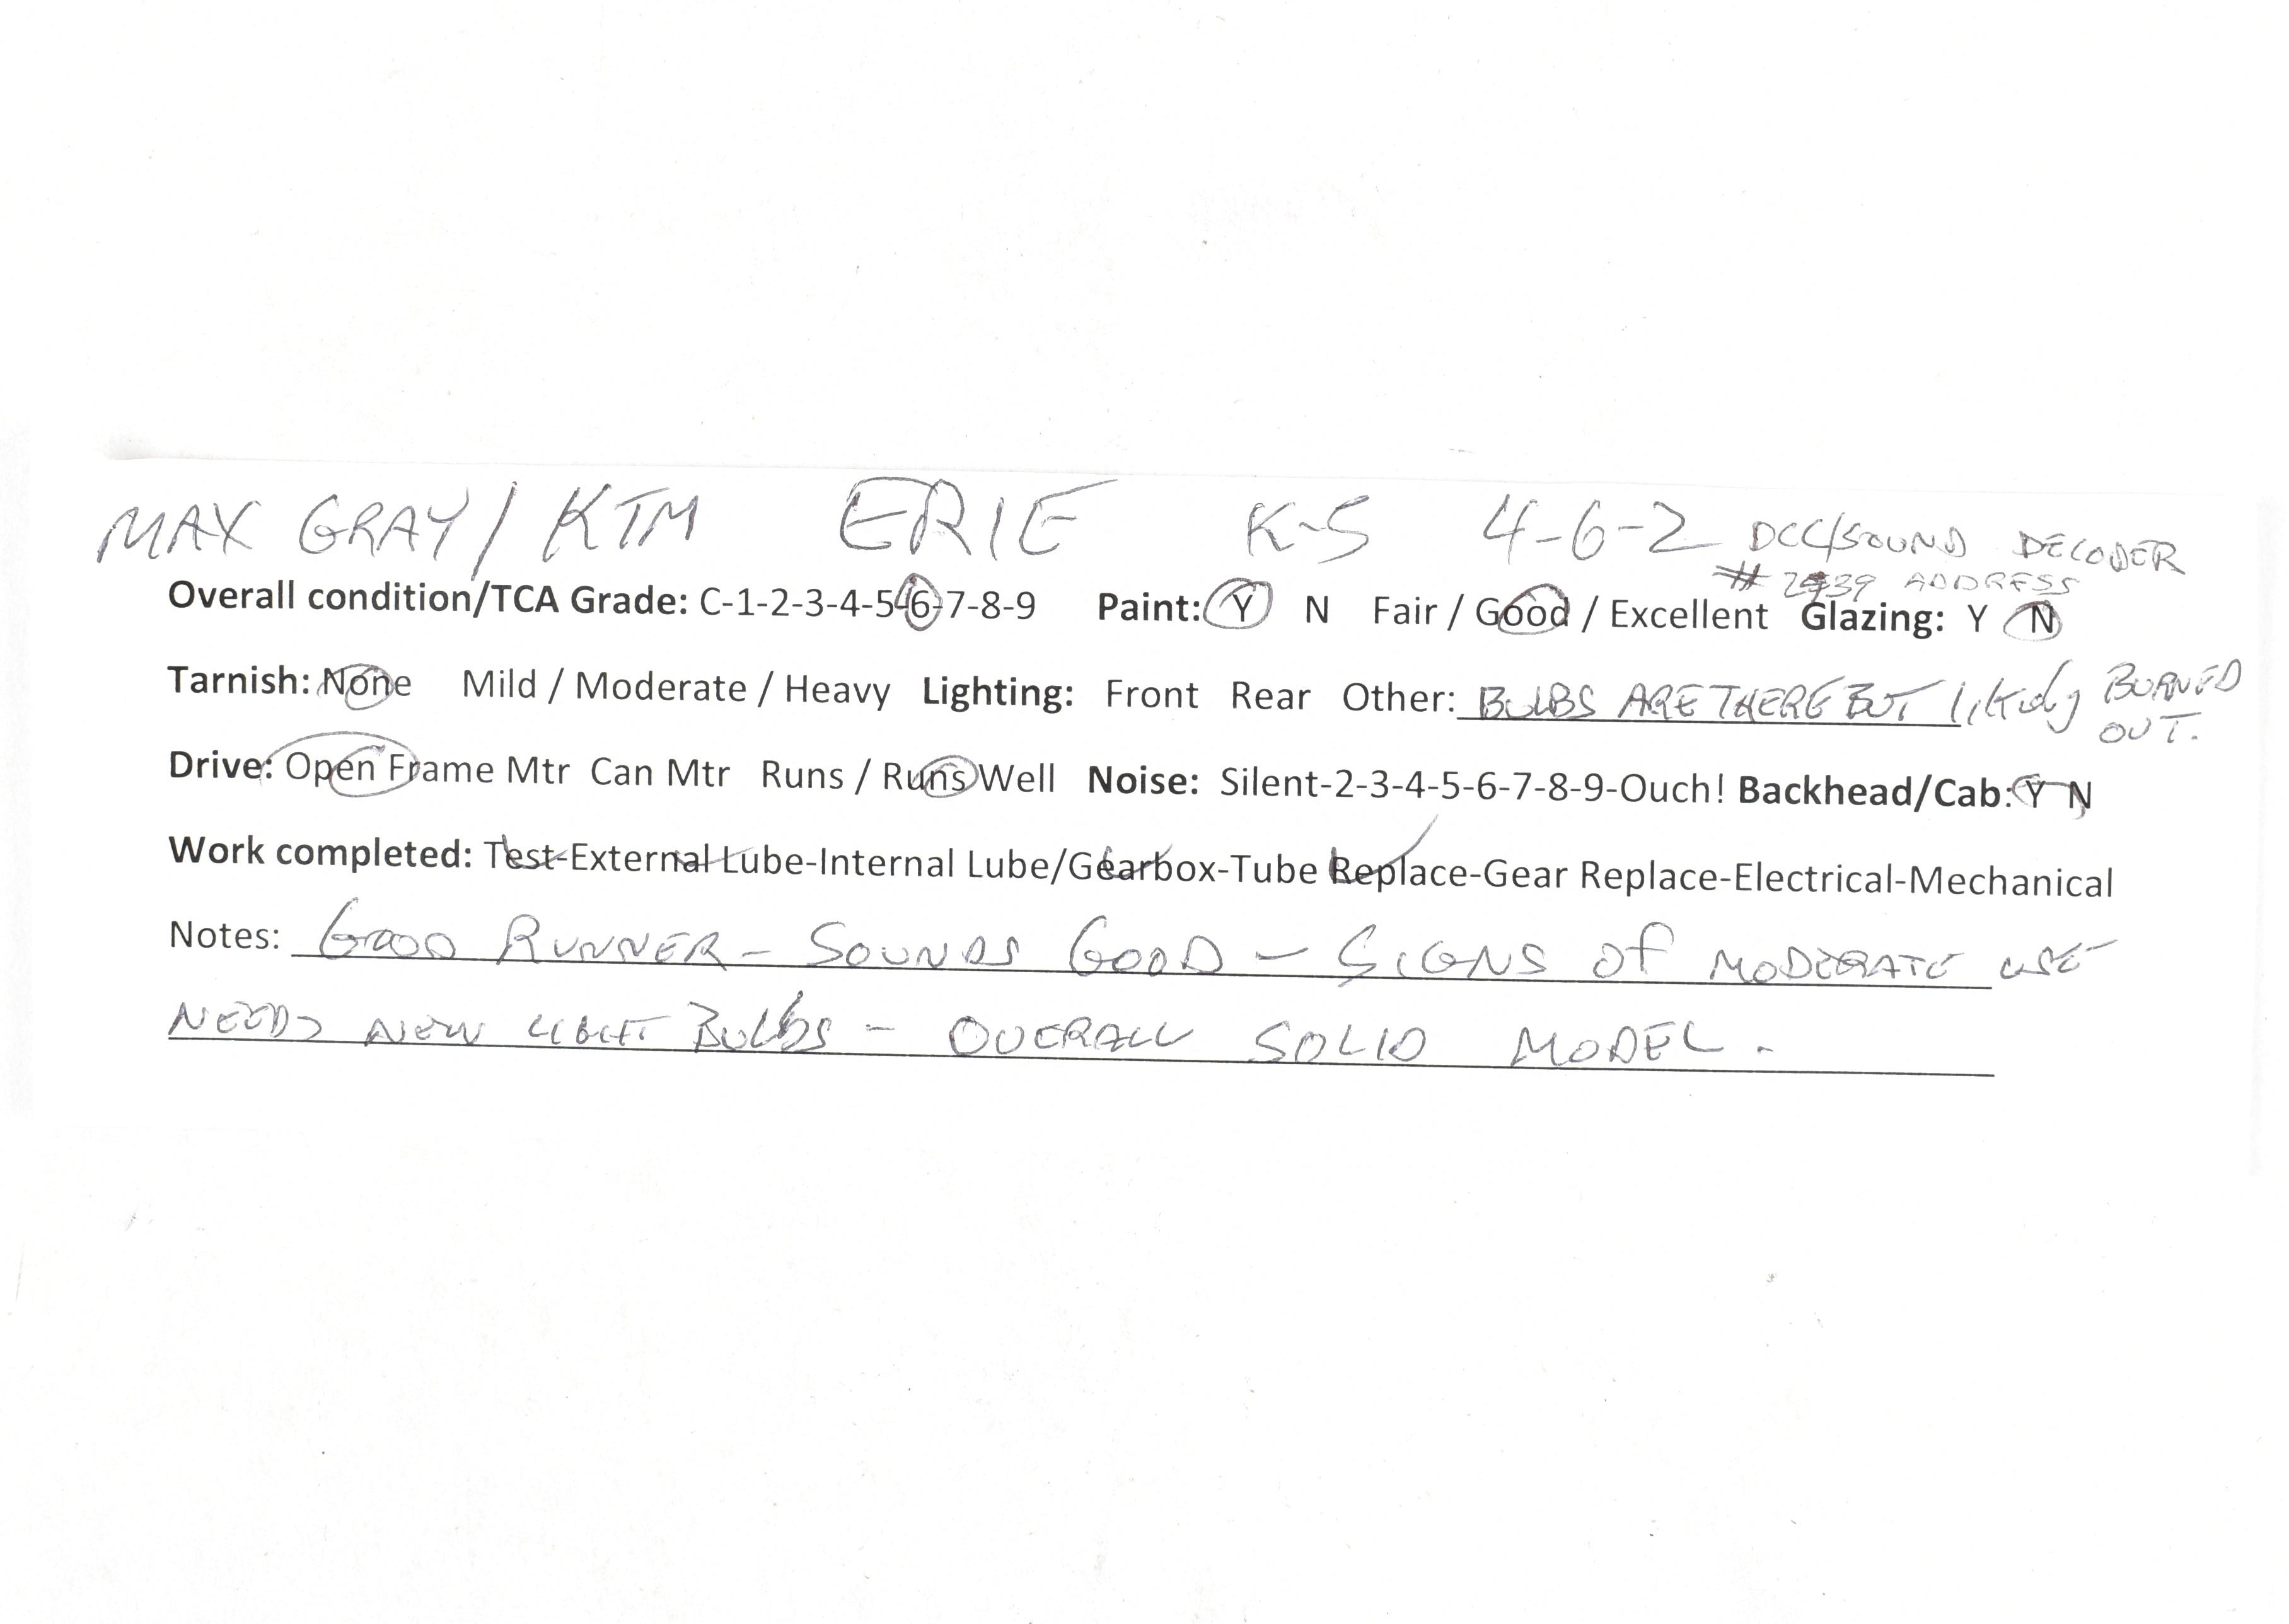 MAX GRAY/KTM ERIE K-5 4-6-2 DCC/SOUND DECODER
# ADDRESS
Overall condition/TCA Grade: C-1-2-3-4-5-6-7-8-9 Paint: Y N Fair / Good / Excellent Glazing: Y N
Tarnish: None Mild / Moderate / Heavy Lighting: Front Rear Other: BULBS ARE THERE BUT likely BURNED
OUT.
Drive: Open Frame Mtr Can Mtr Runs / Runs Well Noise: Silent-2-3-4-5-6-7-8-9-Ouch! Backhead/Cab: Y N
Work completed: Test-External Lube-Internal Lube/Gearbox-Tube Replace-Gear Replace-Electrical-Mechanical
Notes: GOOD RUNNER - SOUNDS GOOD - SIGNS Of MODERATE USE
NEEDS NEW LIGHT BULbS - OVERALL SOLID MODEL.